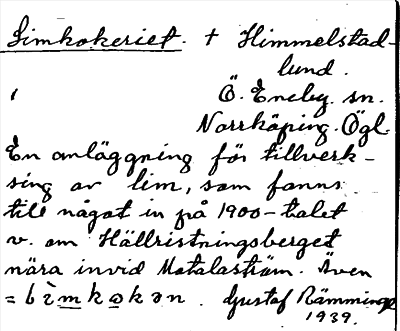 Limkokeriet. + Himmelstad-
lund.
Ö. Eneby. sn.
Norrköping. Ögl.
En anläggning för tillverk-
sing av lim, som fanns
till något in på 1900-talet
v. om Hällristningsberget
nära invid Motalaström. Även
= Gustaf Rämminge
1939.